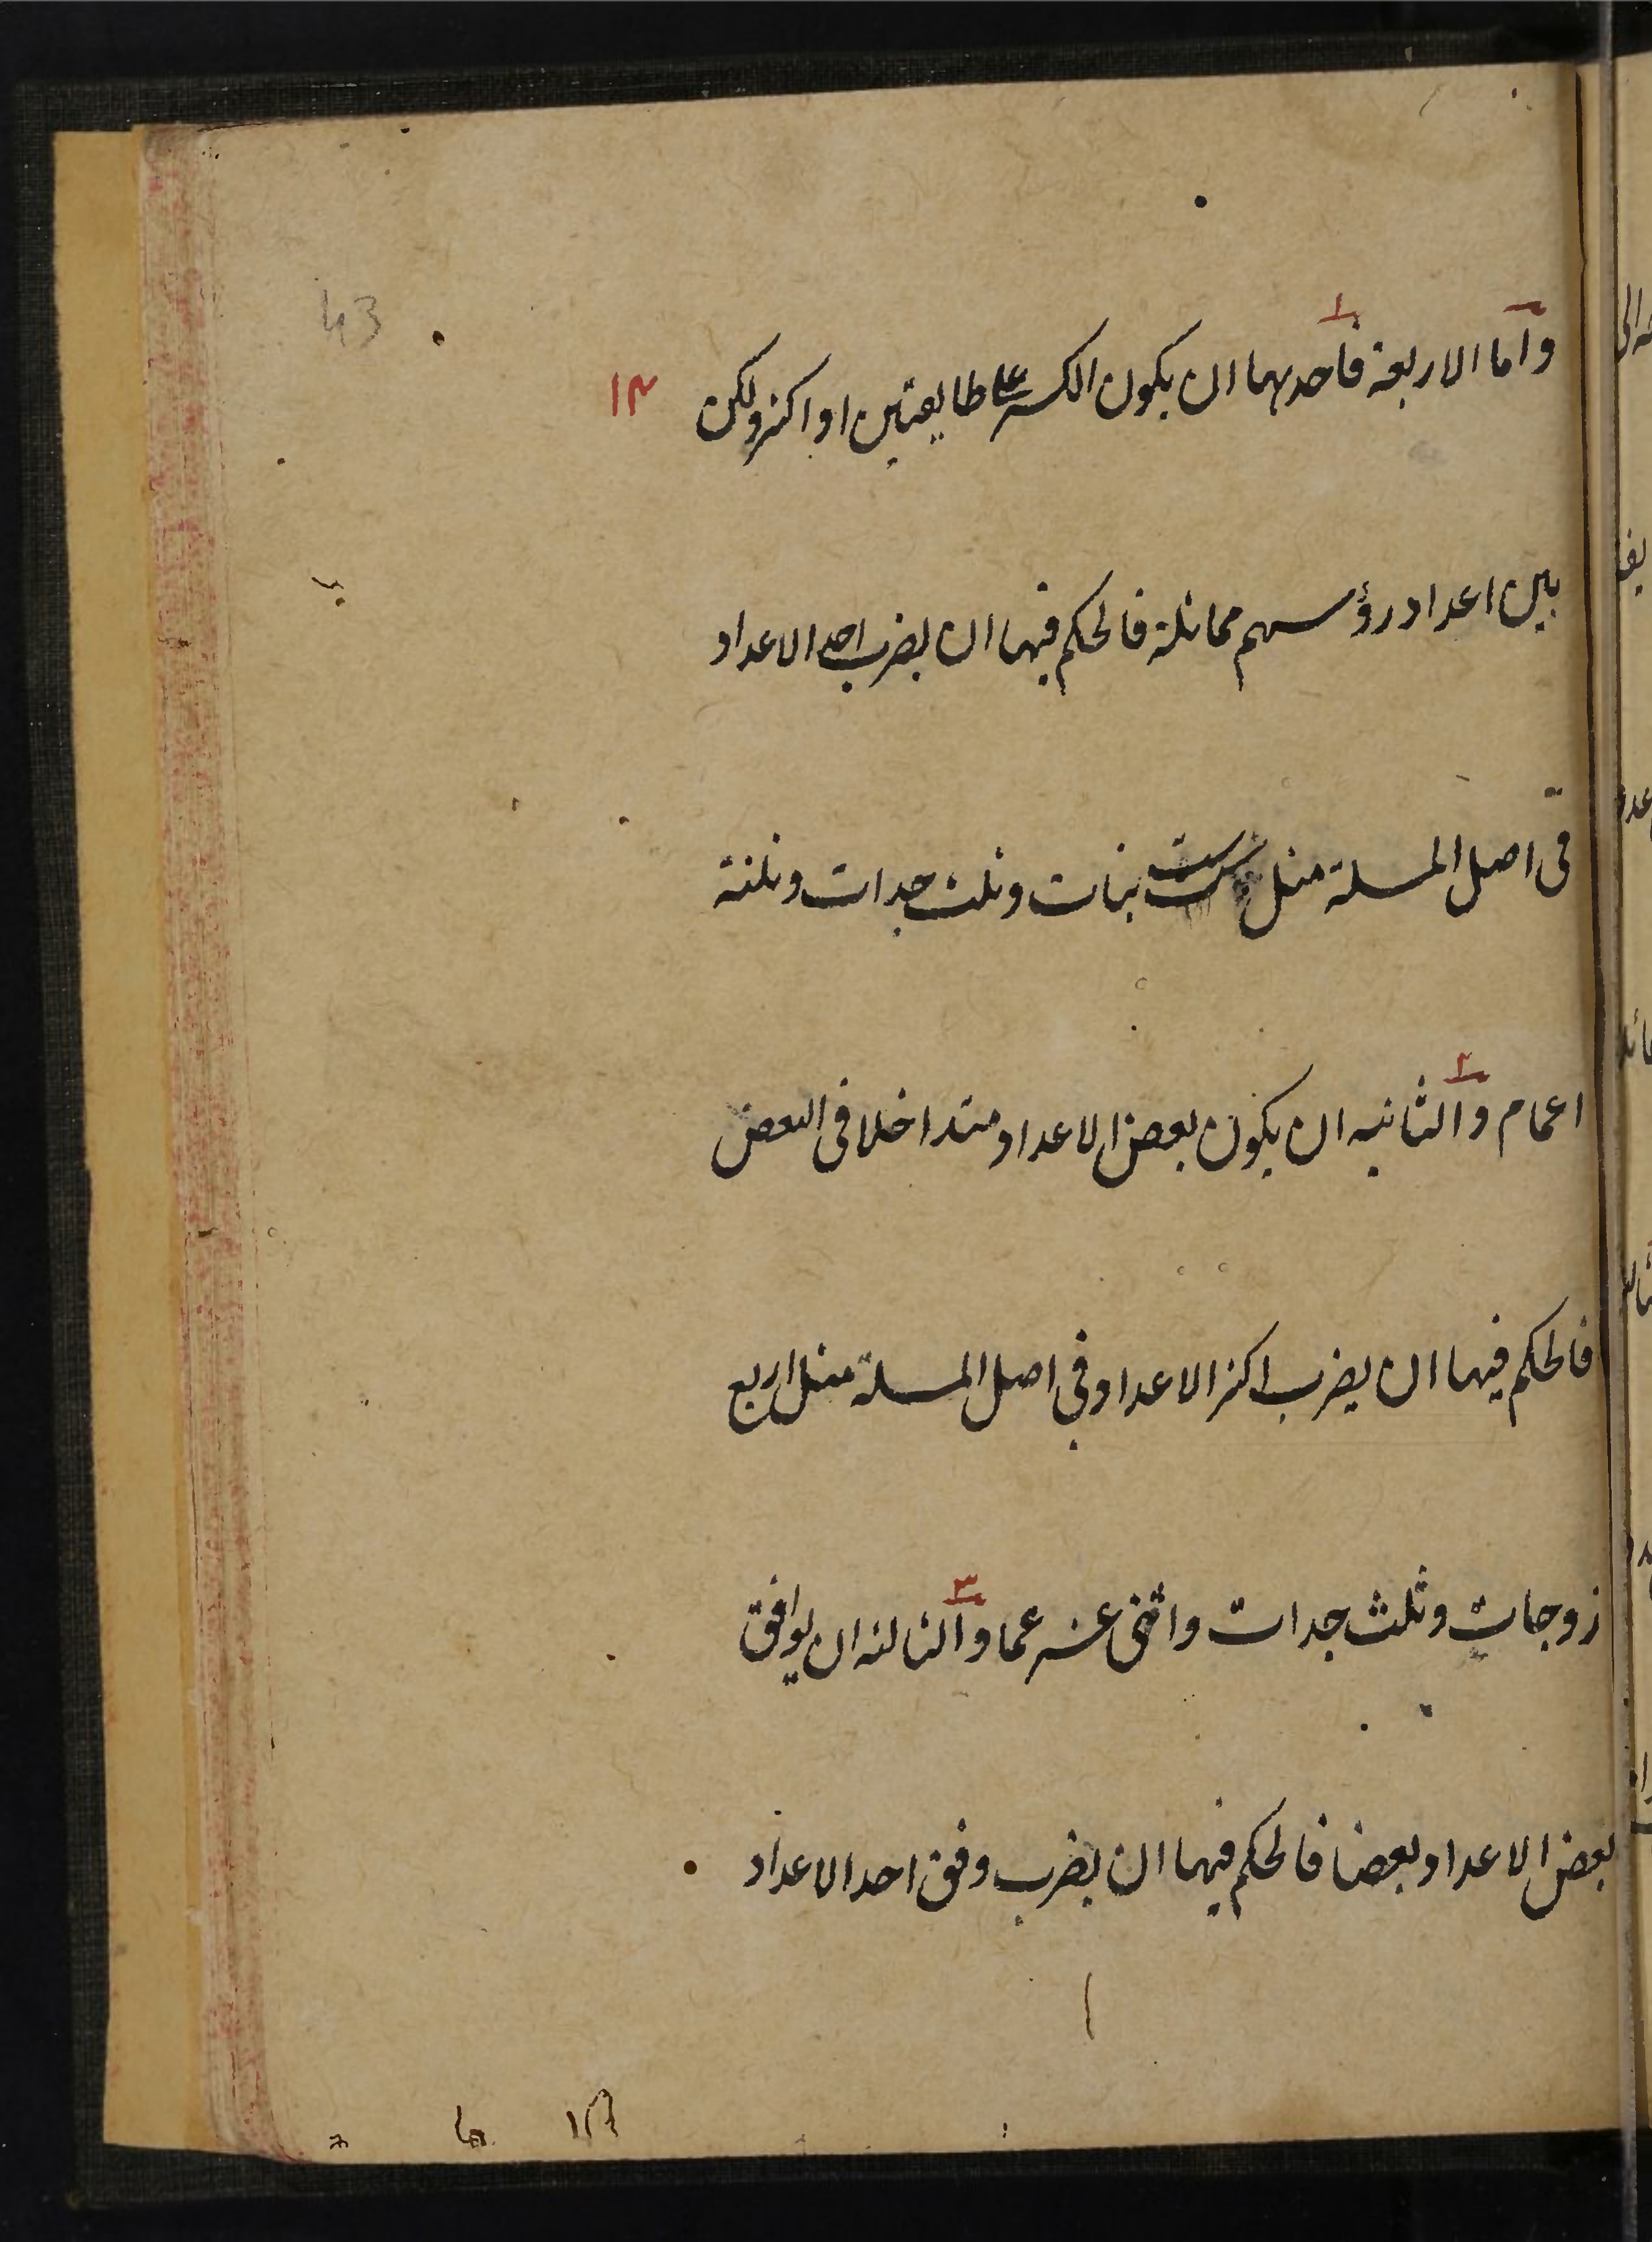 واما الاربعة فاحديهما ان يكون الكسر على طايفتين او اكثر ولكن
١٣
43
بين اعداد رؤسهم مماثلة فالحكم فيها ان يضرب احد الاعداد
فى اصل المسلة مثل ست بنات وثلث جدات وثلثة
اعمام والثانيه ان يكون بعض الاعداد متداخلا فى البعض
فالحكم فيها ان يضرب اكثر الاعداد فى اصل المسلة مثل اربع
زوجات وثلث جدات واثنى عشر عما والثالثه ان يوافق
بعض الاعداد بعضا فالحكم فيها ان يضرب وفق احد الاعداد